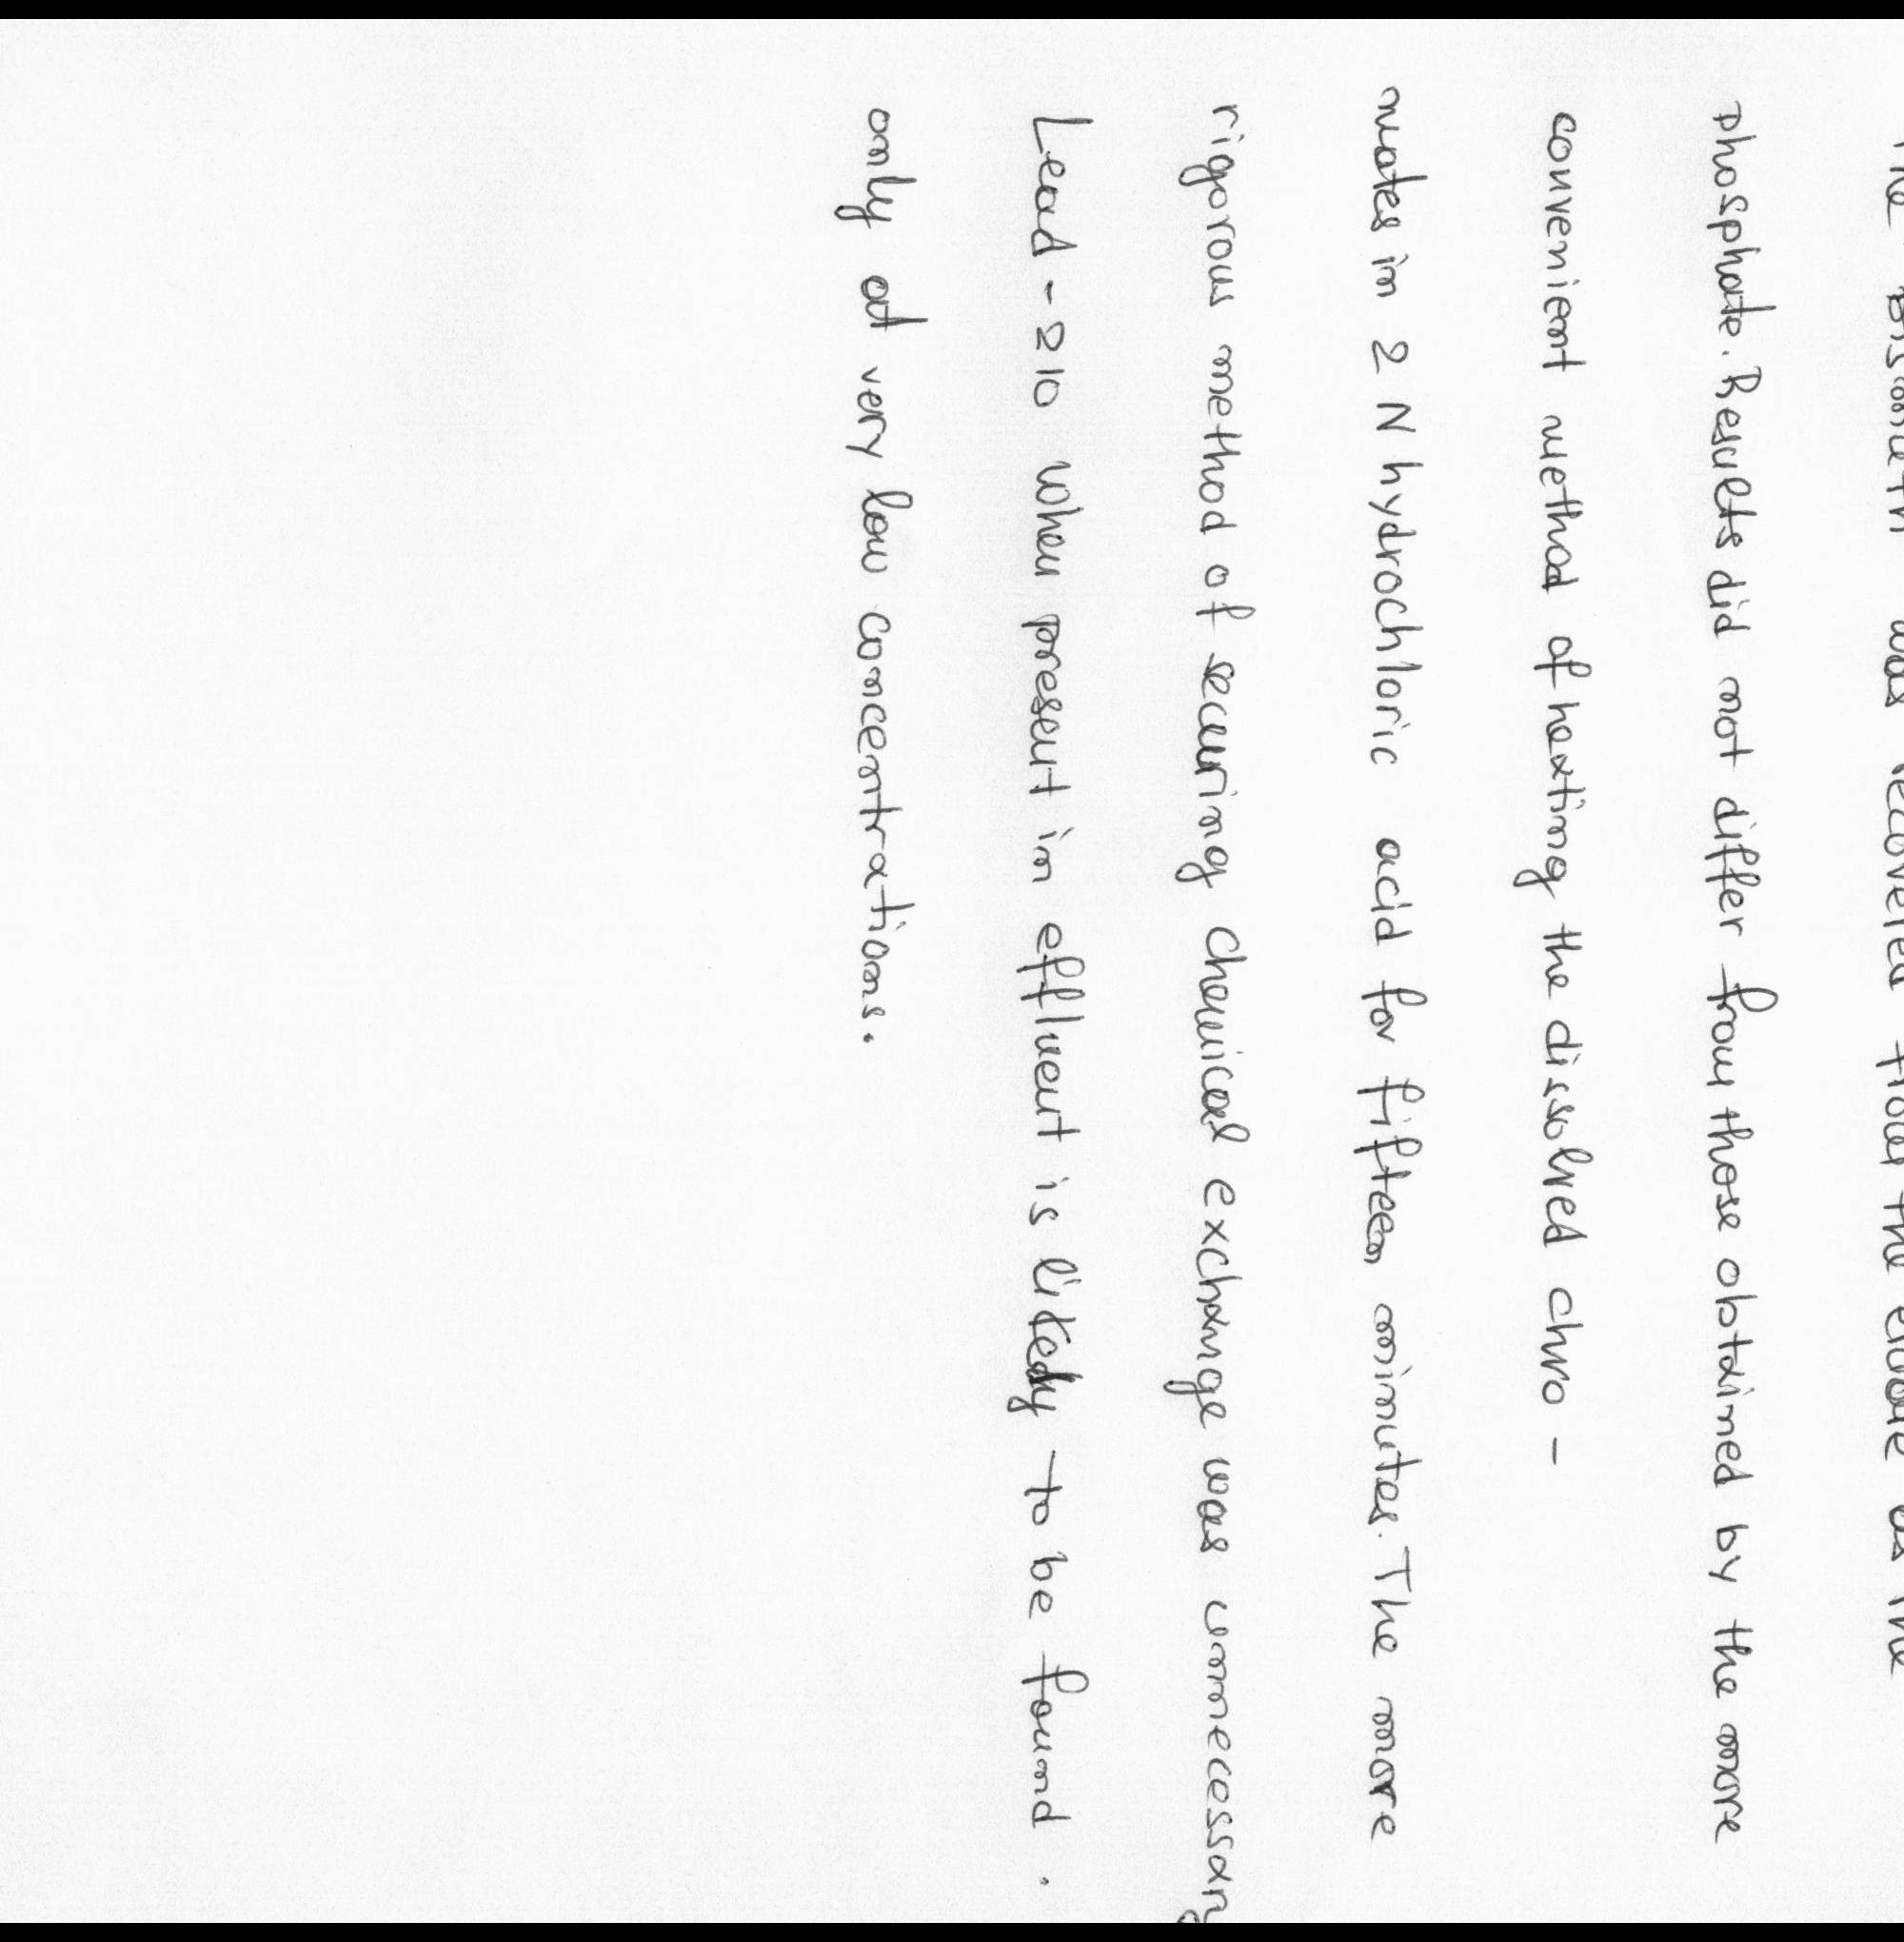 The Bismuth was recovered from the eluate as the
phosphate. Results did not differ from those obtained by the more
convenient method of heating the dissolved chro -
mates in 2 N hydrochloric acid for fifteen minutes. The more
rigorous method of securing chemical exchange was unnecessary
Lead - 210 when present in effluent is likely to be found .
only at very low concentrations.